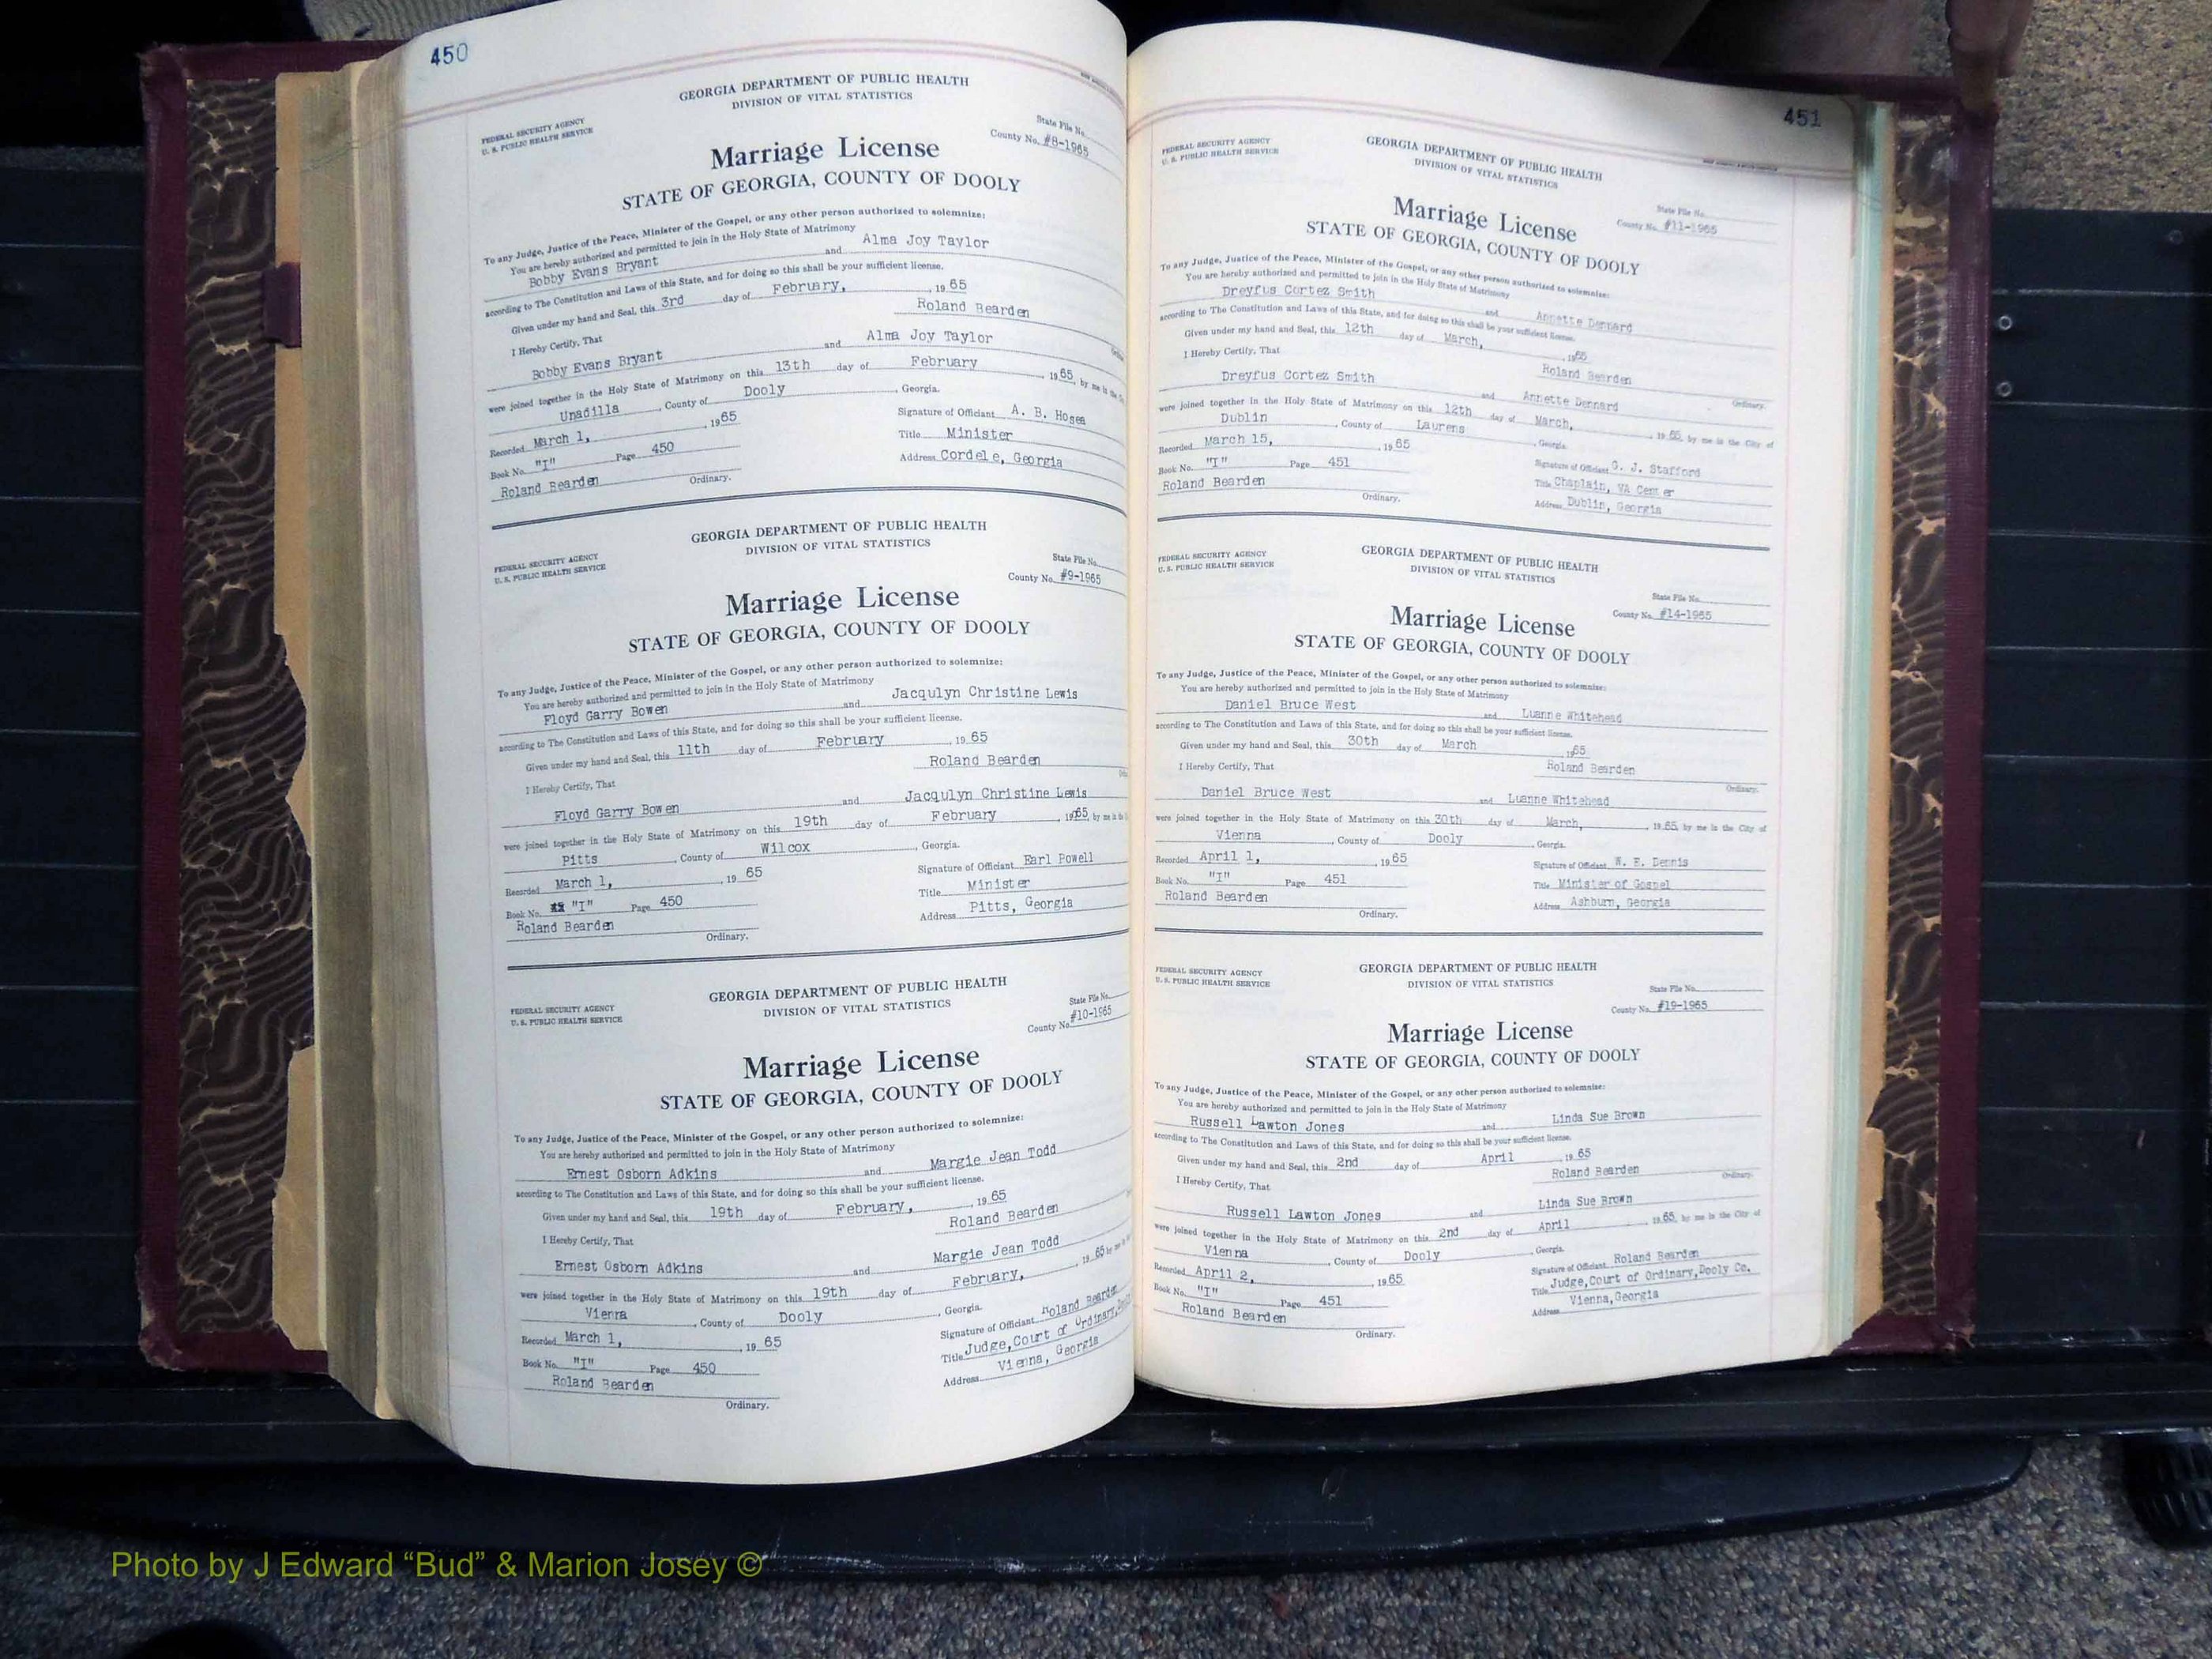 450
GEORGIA DEPARTMENT OF PUBLIC HEALTH
DIVISION OF VITAL STATISTICS
FEDERAL SECURITY AGENCY
U. S. PUBLIC HEALTH SERVICE
State File No.
County No. #8-1965
Marriage License
STATE OF GEORGIA, COUNTY OF DOOLY
To any Judge, Justice of the Peace, Minister of the Gospel, or any other person authorized to solemnize:
You are hereby authorized and permitted to join in the Holy State of Matrimony
Bobby Evans Bryant and Alma Joy Taylor
according to The Constitution and Laws of this State, and for doing so this shall be your sufficient license.
Given under my hand and Seal, this 3rd day of February, 19 65
Roland Bearden
I Hereby Certify, That
Bobby Evans Bryant and Alma Joy Taylor
were joined together in the Holy State of Matrimony on this 13th day of February 19 65, by me in the
Unadilla, County of Dooly, Georgia.
Recorded March 1, 19 65
Signature of Officiant A. B. Hosea
Book No. "I" Page 450
Title Minister
Roland Bearden
Address Cordele, Georgia
Ordinary.
GEORGIA DEPARTMENT OF PUBLIC HEALTH
DIVISION OF VITAL STATISTICS
FEDERAL SECURITY AGENCY
U. S. PUBLIC HEALTH SERVICE
State File No.
County No. #9-1965
Marriage License
STATE OF GEORGIA, COUNTY OF DOOLY
To any Judge, Justice of the Peace, Minister of the Gospel, or any other person authorized to solemnize:
You are hereby authorized and permitted to join in the Holy State of Matrimony
Floyd Garry Bowen and Jacqulyn Christine Lewis
according to The Constitution and Laws of this State, and for doing so this shall be your sufficient license.
Given under my hand and Seal, this 11th day of February, 19 65
Roland Bearden
I Hereby Certify, That
Floyd Garry Bowen and Jacqulyn Christine Lewis
were joined together in the Holy State of Matrimony on this 19th day of February, 1965, by me in the
Pitts, County of Wilcox, Georgia.
Recorded March 1, 19 65
Signature of Officiant Earl Powell
Book No. "I" Page 450
Title Minister
Roland Bearden
Address Pitts, Georgia
Ordinary.
GEORGIA DEPARTMENT OF PUBLIC HEALTH
DIVISION OF VITAL STATISTICS
FEDERAL SECURITY AGENCY
U. S. PUBLIC HEALTH SERVICE
State File No.
County No. #10-1965
Marriage License
STATE OF GEORGIA, COUNTY OF DOOLY
To any Judge, Justice of the Peace, Minister of the Gospel, or any other person authorized to solemnize:
You are hereby authorized and permitted to join in the Holy State of Matrimony
Ernest Osborn Adkins and Margie Jean Todd
according to The Constitution and Laws of this State, and for doing so this shall be your sufficient license.
Given under my hand and Seal, this 19th day of February, 19 65
Roland Bearden
I Hereby Certify, That
Ernest Osborn Adkins and Margie Jean Todd
were joined together in the Holy State of Matrimony on this 19th day of February, 19 65 by me in
Vienna, County of Dooly, Georgia.
Recorded March 1, 19 65
Signature of Officiant Roland Bearden
Book No. "I" Page 450
Title Judge, Court of Ordinary,
Roland Bearden
Address Vienna, Georgia
Ordinary.
451
GEORGIA DEPARTMENT OF PUBLIC HEALTH
DIVISION OF VITAL STATISTICS
FEDERAL SECURITY AGENCY
U. S. PUBLIC HEALTH SERVICE
State File No.
County No. #11-1965
Marriage License
STATE OF GEORGIA, COUNTY OF DOOLY
To any Judge, Justice of the Peace, Minister of the Gospel, or any other person authorized to solemnize:
You are hereby authorized and permitted to join in the Holy State of Matrimony
Dreyfus Cortez Smith and Annette Dennard
according to The Constitution and Laws of this State, and for doing so this shall be your sufficient license.
Given under my hand and Seal, this 12th day of March, 1965
Roland Bearden
I Hereby Certify, That
Ordinary.
Dreyfus Cortez Smith and Annette Dennard
were joined together in the Holy State of Matrimony on this 12th day of March, 19 65, by me in the City of
Dublin, County of Laurens, Georgia.
Recorded March 15, 19 65
Signature of Officiant G. J. Stafford
Book No. "I" Page 451
Title Chaplain, VA Center
Roland Bearden
Address Dublin, Georgia
Ordinary.
GEORGIA DEPARTMENT OF PUBLIC HEALTH
DIVISION OF VITAL STATISTICS
FEDERAL SECURITY AGENCY
U. S. PUBLIC HEALTH SERVICE
State File No.
County No. #14-1965
Marriage License
STATE OF GEORGIA, COUNTY OF DOOLY
To any Judge, Justice of the Peace, Minister of the Gospel, or any other person authorized to solemnize:
You are hereby authorized and permitted to join in the Holy State of Matrimony
Daniel Bruce West and Luanne Whitehead
according to The Constitution and Laws of this State, and for doing so this shall be your sufficient license.
Given under my hand and Seal, this 30th day of March 1965
Roland Bearden
I Hereby Certify, That
Ordinary.
Daniel Bruce West and Luanne Whitehead
were joined together in the Holy State of Matrimony on this 30th day of March, 19 65, by me in the City of
Vienna, County of Dooly, Georgia.
Recorded April 1, 19 65
Signature of Officiant W. E. Dennis
Book No. "I" Page 451
Title Minister of Gospel
Roland Bearden
Address Ashburn, Georgia
Ordinary.
GEORGIA DEPARTMENT OF PUBLIC HEALTH
DIVISION OF VITAL STATISTICS
FEDERAL SECURITY AGENCY
U. S. PUBLIC HEALTH SERVICE
State File No.
County No. #19-1965
Marriage License
STATE OF GEORGIA, COUNTY OF DOOLY
To any Judge, Justice of the Peace, Minister of the Gospel, or any other person authorized to solemnize:
You are hereby authorized and permitted to join in the Holy State of Matrimony
Russell Lawton Jones and Linda Sue Brown
according to The Constitution and Laws of this State, and for doing so this shall be your sufficient license.
Given under my hand and Seal, this 2nd day of April 19 65
Roland Bearden
I Hereby Certify, That
Ordinary.
Russell Lawton Jones and Linda Sue Brown
were joined together in the Holy State of Matrimony on this 2nd day of April 19 65, by me in the City of
Vienna, County of Dooly, Georgia.
Recorded April 2, 19 65
Signature of Officiant Roland Bearden
Book No. "I" Page 451
Title Judge, Court of Ordinary, Dooly Co.
Roland Bearden
Address Vienna, Georgia
Ordinary.
Photo by J Edward “Bud” & Marion Josey ©